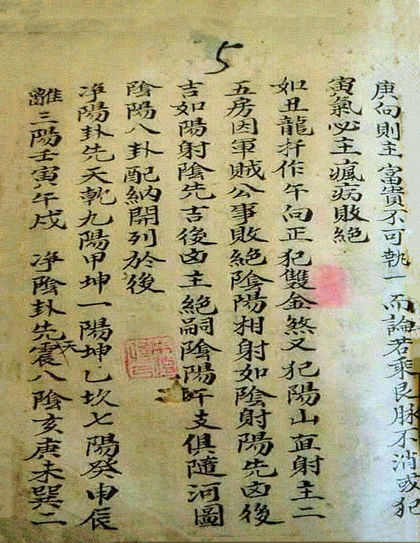 5
庚向則主富貴不可執一而論若乘艮脉不消或犯
寅氣必主瘋病敗絕
如丑龍扦作午向正犯雙金煞又犯陽山直射主二
五房因軍賊公事敗絕陰陽相射如陰射陽先凶後
吉如陽射陰先吉後凶主絕嗣陰陽支俱隨河圖
陰陽八卦配納開列於後
净陽卦先天乾九陽甲坤一陽坤乙坎七陽癸申辰
離三陽壬寅午戌 净陰卦先天震八陰亥庚未巽二